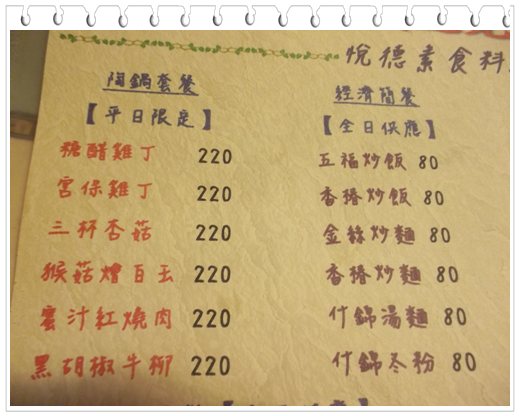 悅德素食料
陶鍋套餐
【平日限定】
糖醋雞丁 220
宮保雞丁 220
三杯杏菇 220
猴菇燴百玉 220
蜜汁紅燒肉 220
黑胡椒牛柳 220
經濟簡餐
【全日供應】
五福炒飯 80
香椿炒飯 80
金絲炒麵 80
香椿炒麵 80
什錦湯麵 80
什錦冬粉 80